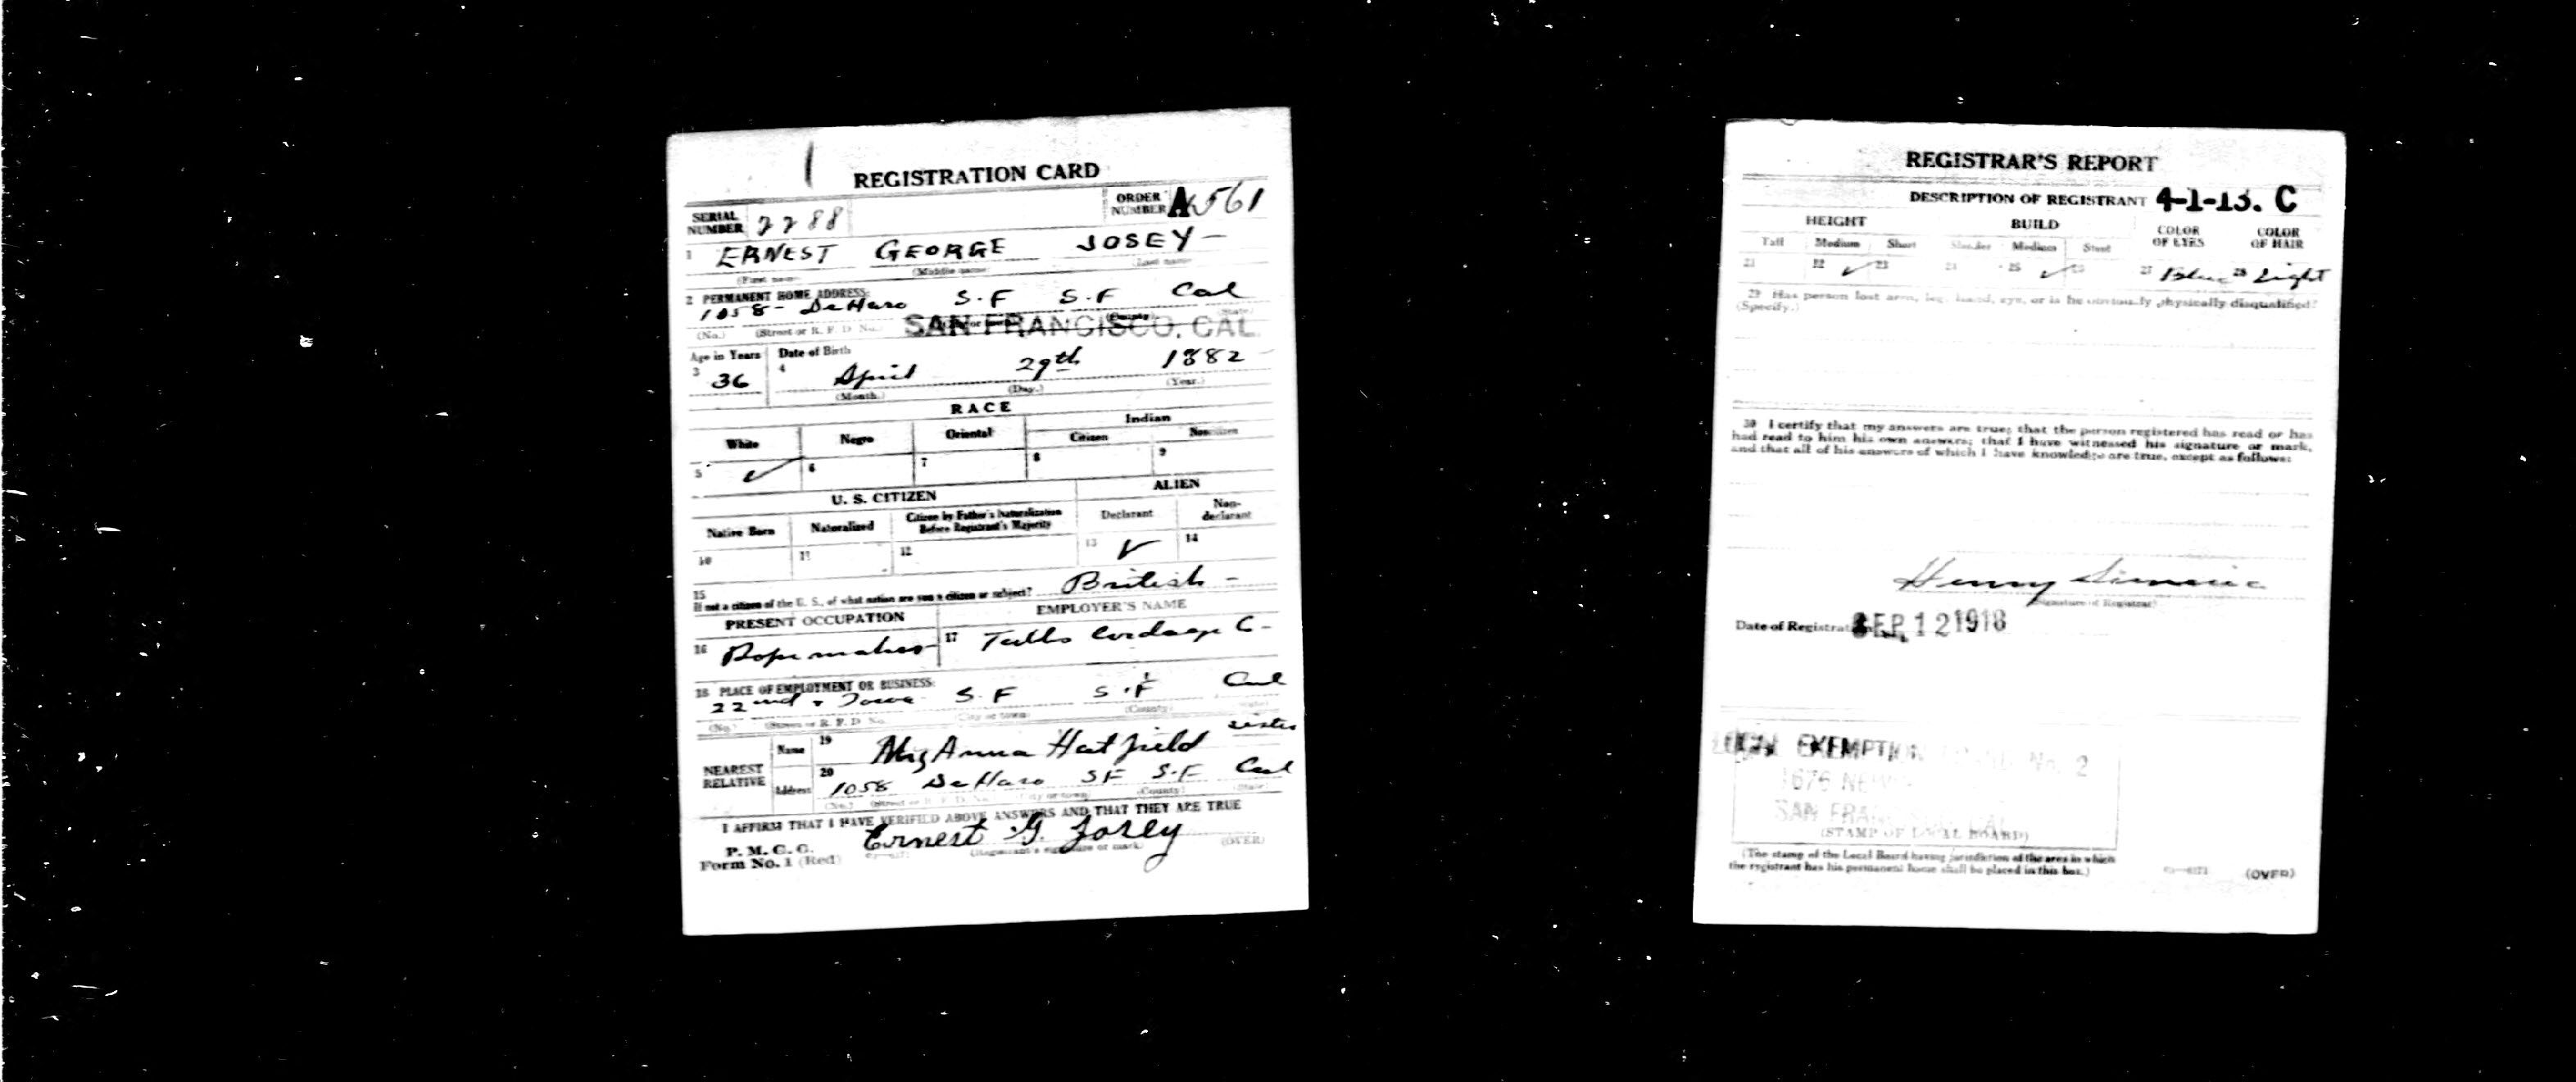 REGISTRATION CARD
SERIAL NUMBER 2288
ORDER NUMBER A 561
1 ERNEST GEORGE JOSEY -
(First name) (Middle name) (Last name)
2 PERMANENT HOME ADDRESS:
1058 - DeHaro S.F S.F Cal
(No.) (Street or R. F. D. No.) (City or town) (County) (State)
SAN FRANCISCO, CAL.
Age in Years Date of Birth
3 36 4 April 29th 1882
(Month.) (Day.) (Year.)
RACE
White Negro Oriental Indian
Citizen Noncitizen
5 ✓ 6 7 8 9
U. S. CITIZEN ALIEN
Native Born Naturalized Citizen by Father's Naturalization Before Registrant's Majority Declarant Non-declarant
10 11 12 13 ✓ 14
15
If not a citizen of the U. S., of what nation are you a citizen or subject? British -
PRESENT OCCUPATION EMPLOYER'S NAME
16 Rope maker 17 Tubbs Cordage C-
18 PLACE OF EMPLOYMENT OR BUSINESS:
22nd + Iowa S.F S.F Cal
(No.) (Street or R. F. D. No.) (City or town) (County) (State)
NEAREST RELATIVE
Name 19 Mrs Anna Hatfield sister
Address 20 1058 DeHaro SF S.F Cal
(No.) (Street or R. F. D. No.) (City or town) (County) (State)
I AFFIRM THAT I HAVE VERIFIED ABOVE ANSWERS AND THAT THEY ARE TRUE
P. M. G. O.
Form No. 1 (Red) Ernest G. Josey
(Registrant's signature or mark) (OVER)
REGISTRAR'S REPORT
DESCRIPTION OF REGISTRANT 4-1-13. C
HEIGHT BUILD COLOR OF EYES COLOR OF HAIR
Tall Medium Short Slender Medium Stout
21 22 ✓ 23 24 25 ✓ 26 27 Blue 28 Light
29 Has person lost arm, leg, hand, eye, or is he obviously physically disqualified?
(Specify.)
30 I certify that my answers are true; that the person registered has read or has
had read to him his own answers; that I have witnessed his signature or mark,
and that all of his answers of which I have knowledge are true, except as follows:
Henry
(Signature of Registrar)
Date of Registration SEP 12 1918
LOCAL EXEMPTION No. 2
1676 NEW
SAN FRANCISCO, CAL.
(STAMP OF LOCAL BOARD)
(The stamp of the Local Board having jurisdiction of the area in which
the registrant has his permanent home shall be placed in this box.)
(OVER)